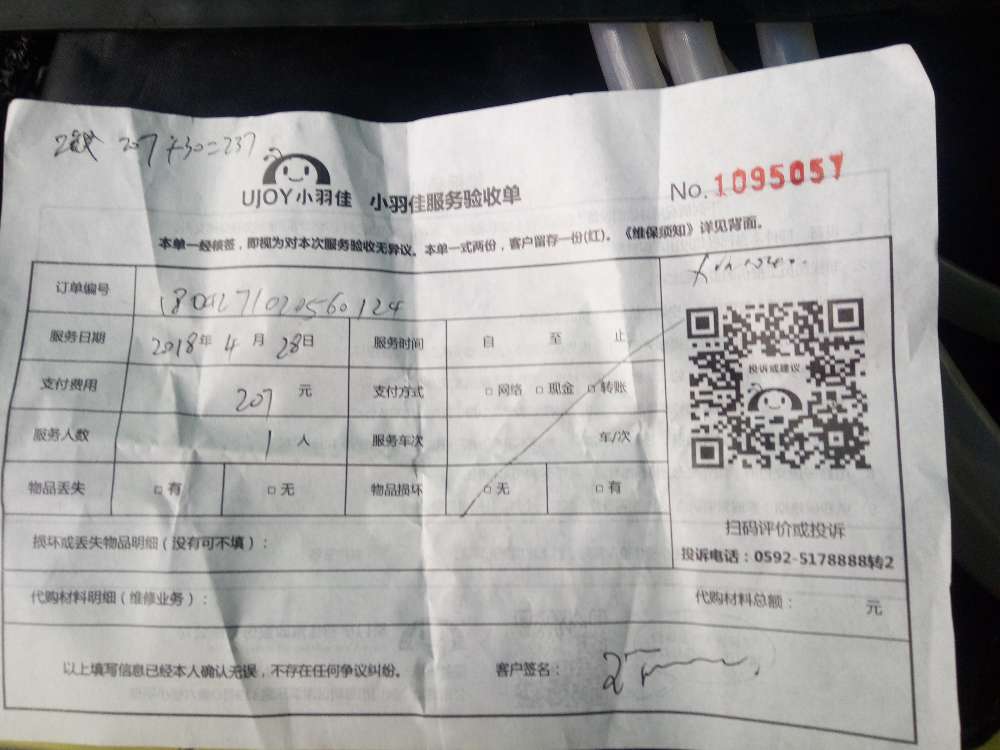 207+30=237
UJOY小羽佳 小羽佳服务验收单
No.1095057
本单一经核签，即视为对本次服务验收无异议。本单一式两份，客户留存一份(红)。《维保须知》详见背面。
订单编号
服务日期 2018年 4月 28日 服务时间 自 至 止
支付费用 207 元 支付方式 □网络 □现金 □转账
服务人数 1 人 服务车次 车/次
物品丢失 □有 □无 物品损坏 □无 □有
投诉或建议
扫码评价或投诉
投诉电话：0592-5178888转2
损坏或丢失物品明细（没有可不填）：
代购材料明细（维修业务）： 代购材料总额： 元
以上填写信息已经本人确认无误，不存在任何争议纠纷。 客户签名：